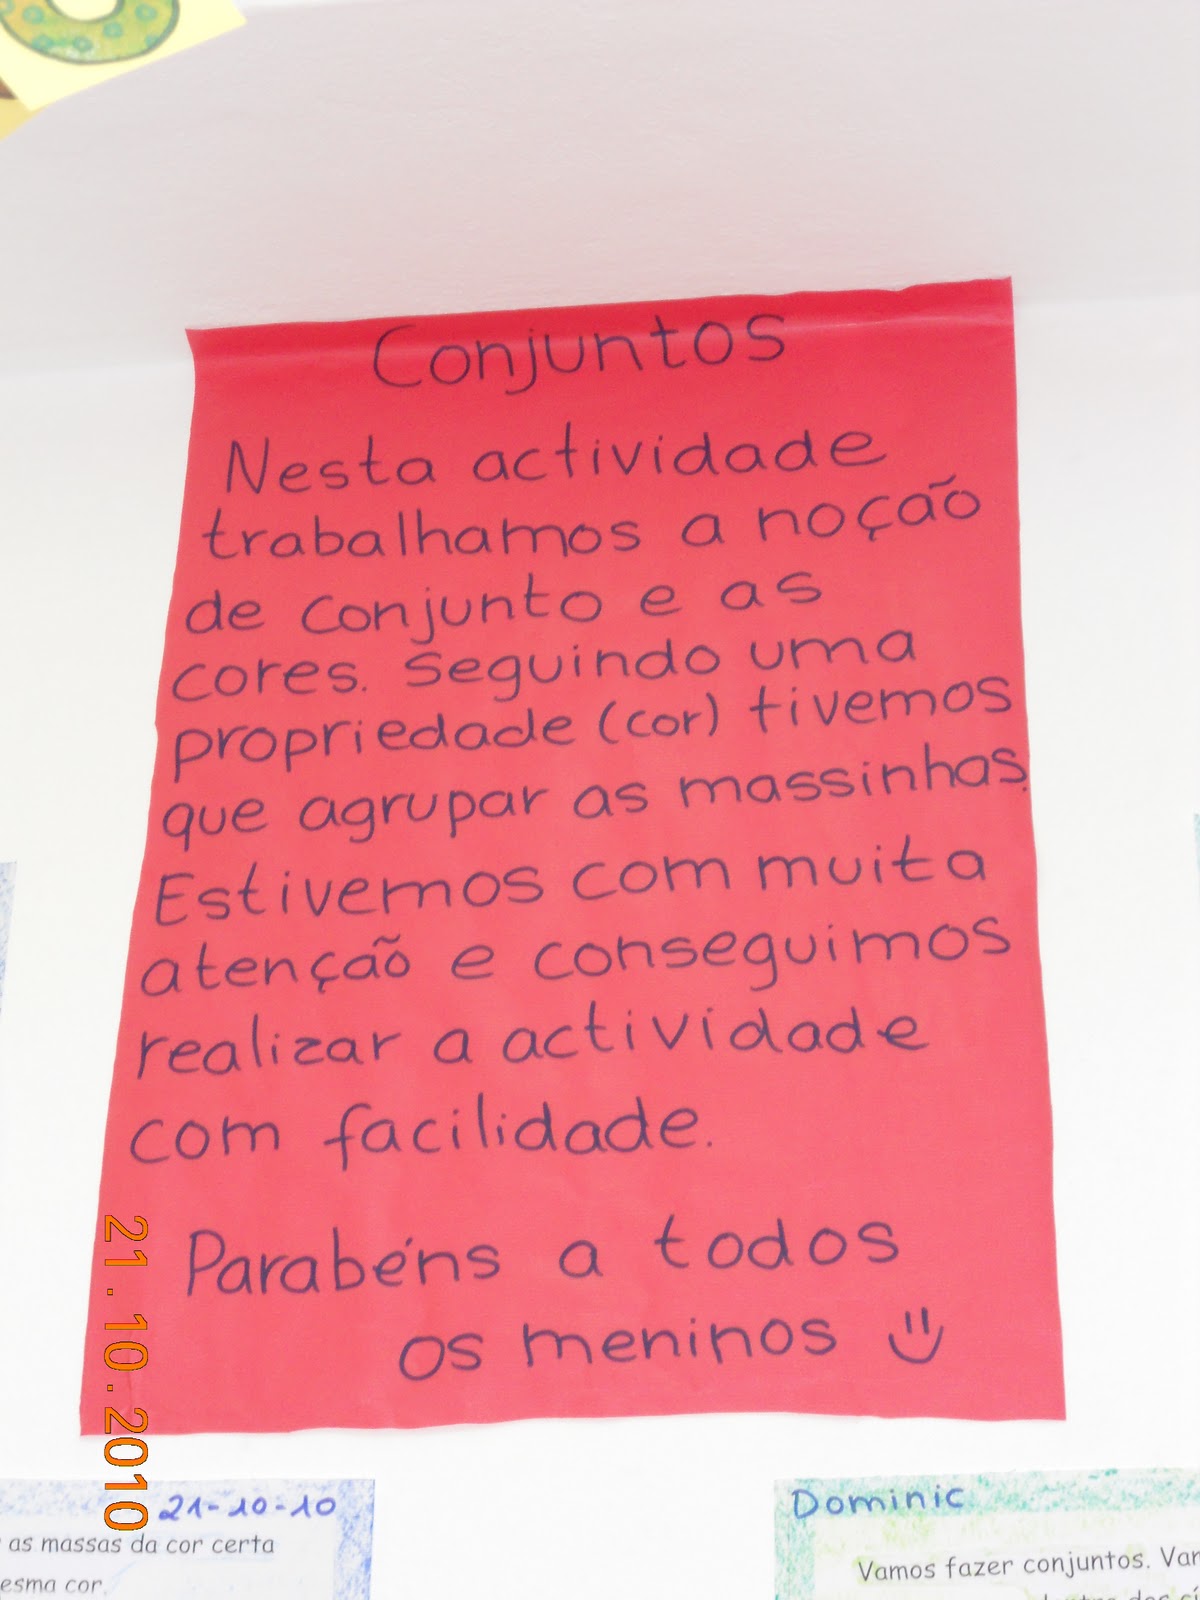 Conjuntos
Nesta actividade
trabalhamos a noção
de conjunto e as
cores. Seguindo uma
propriedade (cor) tivemos
que agrupar as massinhas.
Estivemos com muita
atenção e conseguimos
realizar a actividade
com facilidade.
Parabéns a todos
os meninos
21.10.2010
21-10-10
as massas da cor certa
esma cor.
Dominic
Vamos fazer conjuntos. Van